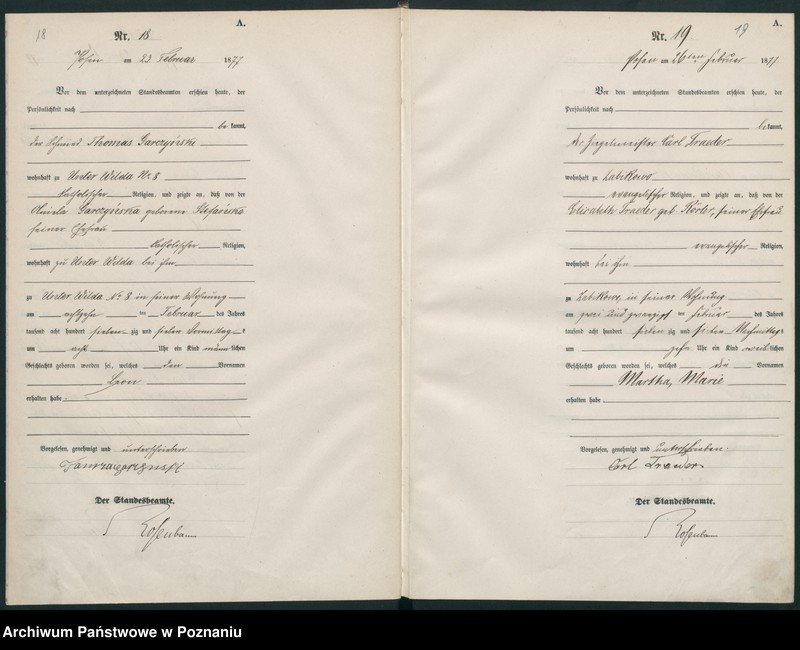 18
A.
Nr. 18
Posen am 23. Februar 1877
Vor dem unterzeichneten Standesbeamten erschien heute, der
Persönlichkeit nach
be kannt,
der Schmied Thomas Garczyński
wohnhaft zu Unter Wilda No 8
katholischer Religion, und zeigte an, daß von der
Garczyńska geborene Stefańska
seiner Ehefrau
katholischer Religion,
wohnhaft zu Unter Wilda bei ihm
zu Unter Wilda No 8 in seiner Wohnung
am achtzehn ten Februar des Jahres
tausend acht hundert sieben zig und sieben Vormittags
um acht Uhr ein Kind männlichen
Geschlechts geboren worden sei, welches den Vornamen
Leon
erhalten habe.
Vorgelesen, genehmigt und unterschrieben
Der Standesbeamte.
19
A.
Nr. 19
Posen am 26ten Februar 1877
Vor dem unterzeichneten Standesbeamten erschien heute, der
Persönlichkeit nach
be kannt,
der Ziegelmeister Carl Traeder
wohnhaft zu Zabikowo
evangelischer Religion, und zeigte an, daß von der
Elisabeth Traeder geb. seiner Ehefrau
evangelischer Religion,
wohnhaft bei ihm
zu Zabikowo, in seiner Wohnung
am zwei und zwanzigsten Februar des Jahres
tausend acht hundert sieben zig und sieben Nachmittags
um zehn Uhr ein Kind weiblichen
Geschlechts geboren worden sei, welches die Vornamen
Martha, Marie
erhalten habe
Vorgelesen, genehmigt und unterschrieben.
Carl Traeder
Der Standesbeamte.
Archiwum Państwowe w Poznaniu